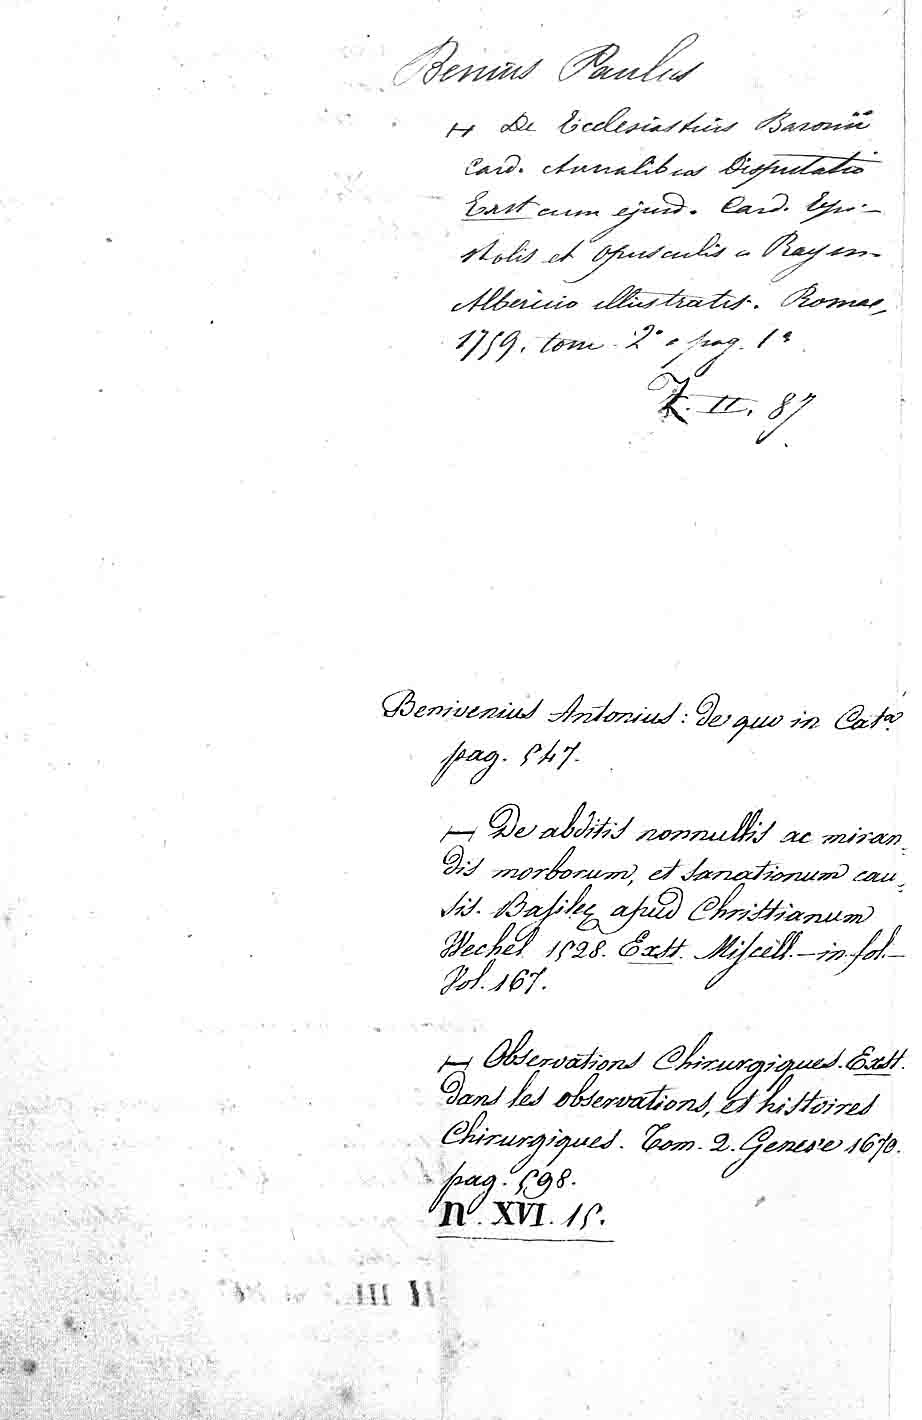 Benius Paulus
⊢ De Ecclesiasticis Baronii
Card. Annalibus Disputatio
Exst cum ejusd. Card. Epi-
stolis et opusculis a Raym-
Alberico illustratis. Romae,
1759. tom. 2° a pag. 1ª
Z. II. 87
Benivenius Antonius: de quo in Catº.
pag. 547.
⊢ De abditis nonnullis ac miran=
dis morborum, et sanationum cau=
sis. Basileę apud Christianum
Wechel 1528. Exst. Miscell. - in fol. -
Vol. 167.
⊢ Observations Chirurgiques. Exst.
dans les observations, et histoires
Chirurgiques. Tom. 2. Geneve 1670.
pag. 598.
N. XVI. 15.